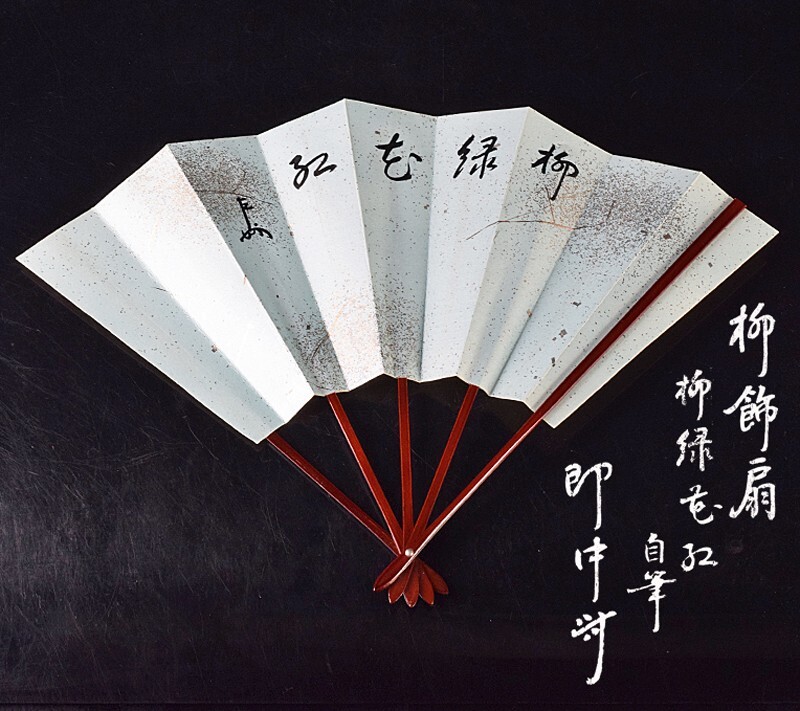 柳緑花紅
柳飾扇
柳緑花紅
自筆
即中斎